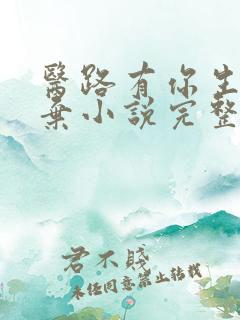 醫路有你生
棄小說完整
君不賤
未任同意禁止轉載